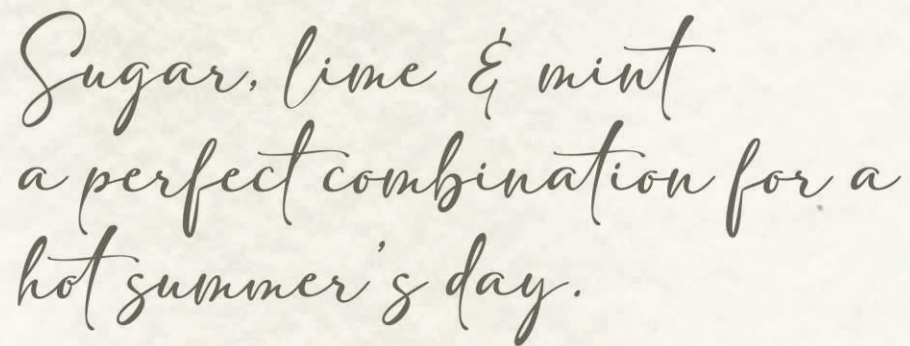 Sugar, lime & mint
a perfect combination for a
hot summer's day.